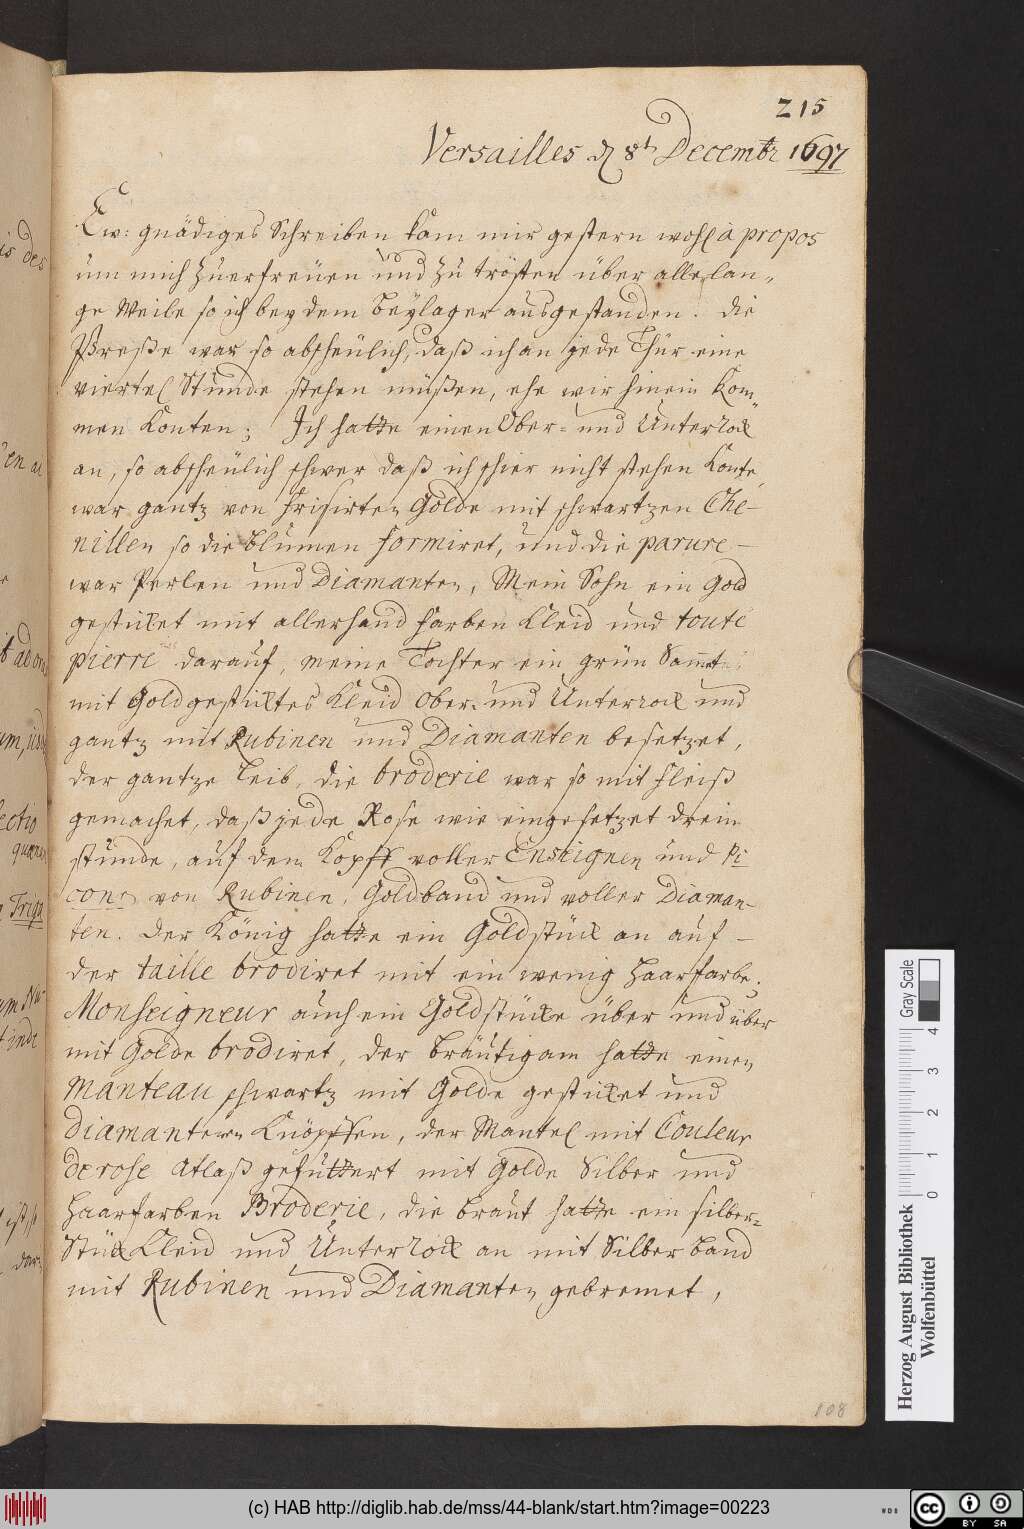 215
Versailles d 8t Decembr 1697
Ew: gnädiges Schreiben kam mir gestern wohl à propos
um mich zuerfreüen und zu trösten über alle lan„
ge Weile so ich bey dem Beylager ausgestanden. Die
Presse war so abscheülich, daß ich an jede Thür eine
viertel Stunde stehen müßen, ehe wir hinein kom„
men konten; Ich hatte einen Ober= und Unterrock
an, so abscheülich schwer daß ich schier nicht stehen konte,
war gantz von frisirten Golde mit schwartzen Che-
nillen so die Blumen formiret, und die parure -
war Perlen und Diamanten, Mein Sohn ein Gold
gesticket mit allerhand farben Kleid und toute
pierre darauf, meine Tochter ein grün Sammet
mit Gold gesticktes Kleid Ober= und Unterrock und
gantz mit Rubinen und Diamanten besetzet,
der gantze Leib, die broderie war so mit fleiß
gemachet, daß jede Rose wie eingesetzet drein
stunde, auf dem Kopff voller Enseignen und Pi
conr von Rubinen, Goldband und voller Diaman-
ten. Der König hatte ein Goldstück an auf -
der taille brodiret mit ein wenig Haarfarbe;
Monseigneur auch ein Goldstücke über und über
mit Golde brodiret, der Bräutigam hatte einen
Manteau schwartz mit Golde gesticket und
Diamantenen Knöpffen, der Mantel mit Couleur
de rose Atlaß gefüttert mit Golde Silber und
Haarfarben Broderie, die Braut hatte ein silber=
Stück Kleid und Unterrock an mit Silber Band
mit Rubinen und Diamanten gebremet,
108
is des
ectio
quæn
Triga
um Nu-
ist, so
dar=
Herzog August Bibliothek
Wolfenbüttel
Gray Scale
0 1 2 3 4
(c) HAB http://diglib.hab.de/mss/44-blank/start.htm?image=00223
WDB
cc BY SA